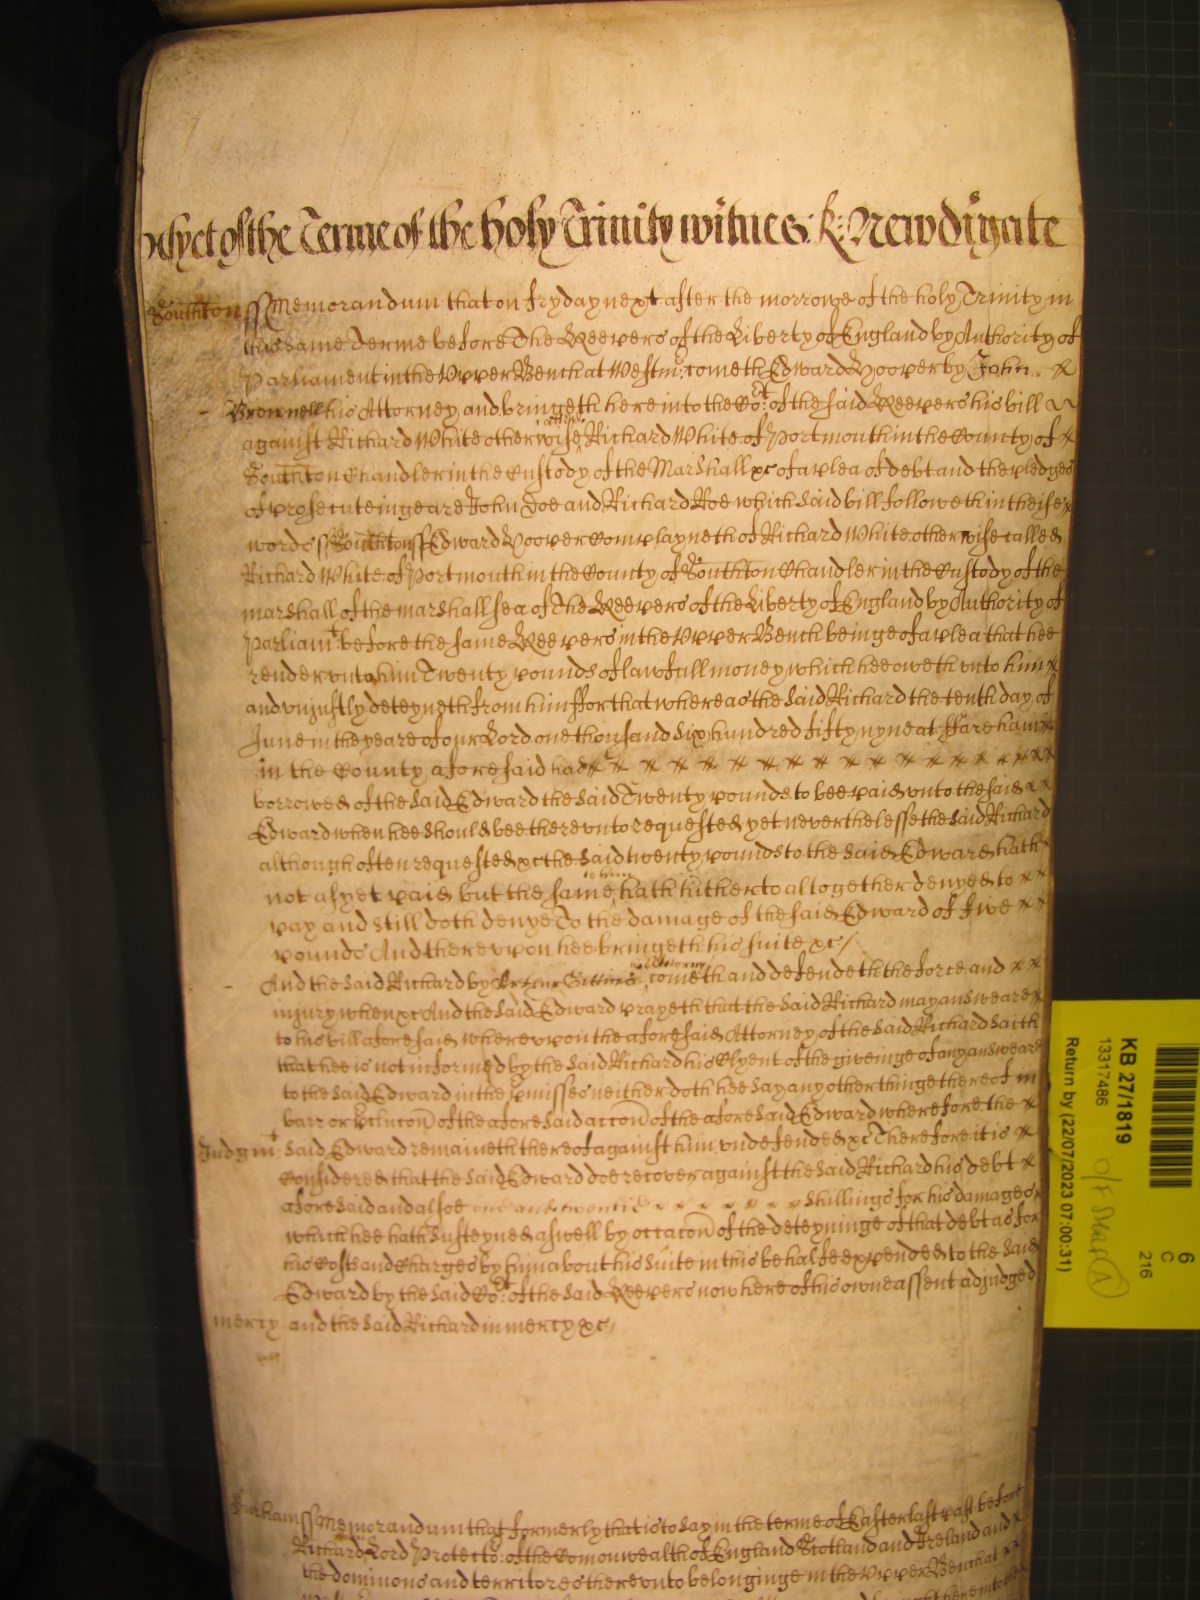 As yet of the Terme of the holy Trinity witnes: R: Newdigate
Southton ss Memorandum that on fryday next after the morrowe of the holy Trinity in
this same Terme before The Keepers of the Liberty of England by Authority of
Parliament in the Vpper Bench at Westmr: cometh Edward Hooper by John
Brownell his Attorney and bringeth here into the Cot: of the said Keepers his bill
against Richard White otherwise called Richard White of Portmouth in the County of
Southton Chandler in the Custody of the Marshall &c of a plea of debt and the pledges
of prosecuteinge are John Doe and Richard Roe which said bill followeth in theise
wordes ss Southton ss Edward Hooper complayneth of Richard White otherwise called
Richard White of Portmouth in the County of Southton Chandler in the Custody of the
marshall of the marshallsea of The Keepers of the Liberty of England by Authority of
Parliamt: before the same Keepers in the Vpper Bench beinge of a plea that hee
render vnto him Twenty pounds of lawfull money which hee oweth vnto him
and vniustly deteyneth from him ffor that whereas the said Richard the tenth day of
June in the yeare of our Lord one thousand six hundred fifty nyne at ffareham
in the County aforesaid had
borrowed of the said Edward the said Twenty pounds to bee paid vnto the said
Edward when hee should bee therevnto requested yet neverthelesse the said Richard
although often requested &c the said twenty pounds to the said Edward hath
not as yet paid but the same to him hath hitherto altogether denyed to
pay and still doth denye To the damage of the said Edward of five
pounds And therevpon hee bringeth his suite &c
And the said Richard by his Attorney cometh and defendeth the force and
iniury when &c And the said Edward prayeth that the said Richard may answeare
to his bill aforesaid wherevpon the aforesaid Attorney of the said Richard saith
that hee is not informed by the said Richard his Clyent of the giveinge of any answeare
to the said Edward in the pmisses neither doth hee say any other thinge thereof in
barr or pclucon of the aforesaid accon of the aforesaid Edward wherefore the
Judgmt said Edward remaineth thereof against him vndefended &c Therefore it is
Considered that the said Edward doe recover against the said Richard his debt
aforesaid and alsoe one and twentie shillings for his damages
which hee hath susteyned aswell by occacon of the deteyninge of that debt as for
his Costs and Charges by him about his suite in this behalfe expended to the said
Edward by the said Cot: of the said Keepers now here of his owne assent adjudged
mercy and the said Richard in mercy &c
Durham ss Memorandum that formerly that is to say in the terme of Easter last past before
Richard Lord Protector: of the Comonwealth of England Scotland and Ireland and
the dominons and territores therevnto belonginge in the Vpper Bench at
KB 27/1819
13317486
Return by (22/07/2023 07:00:31)
6
C
216